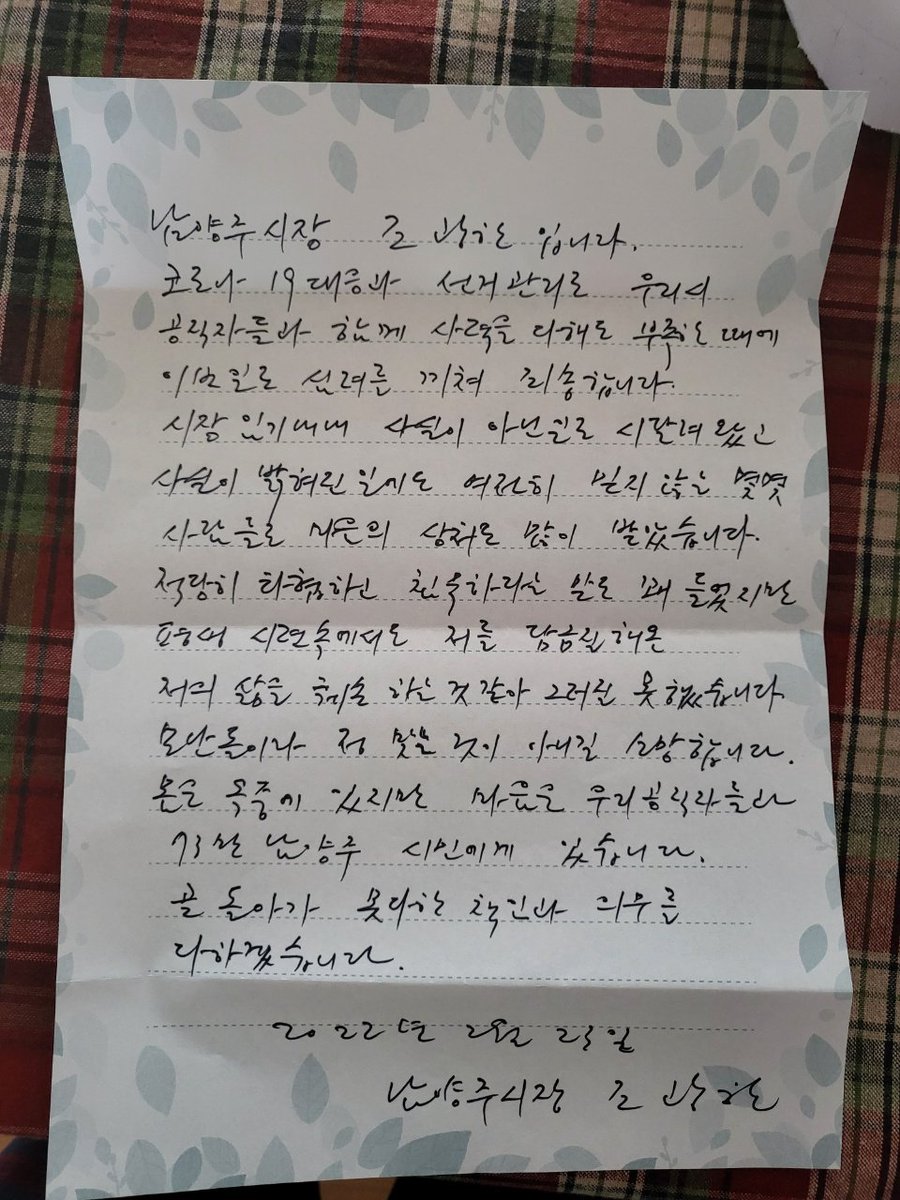 남양주시장 조광한 입니다.
코로나 19 대응과 선거관리로 우리시
공직자들과 함께 사력을 다해도 부족한 때에
이번일로 심려를 끼쳐 죄송합니다.
시장 임기내내 사실이 아닌걸로 시달려 왔고
사실이 밝혀진 일에도 여전히 믿지 않는 몇몇
사람들로 마음의 상처도 많이 받았습니다.
적당히 타협하고 친숙하라는 말도 꽤 들었지만
평생 시련속에서도 저를 담금질해온
저의 삶을 훼손 하는것 같아 그러질 못했습니다
모난돌이라 정 맞는 것이 아니길 소망합니다.
몸은 옥중에 있지만 마음은 우리공직자들과
73만 남양주 시민에게 있습니다.
곧 돌아가 못다한 책임과 의무를
다하겠습니다.
2022년 2월 23일
남양주시장 조광한